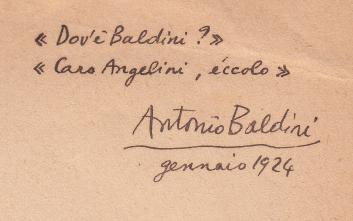 « Dov'è Baldini ? »
« Caro Angelini , éccolo »
Antonio Baldini
gennaio 1924